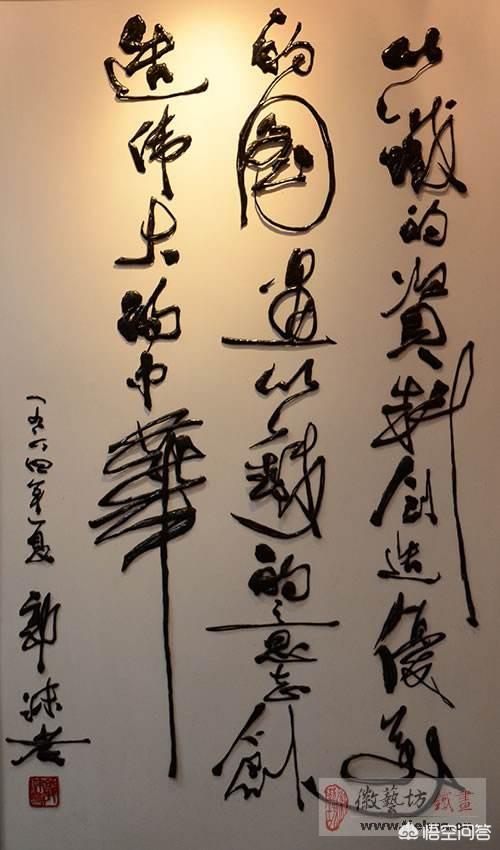 以鐵的資料創造優美
的圖畫以鐵的意志創
造偉大的中華
一九六四年夏 郭沫若
徽藝坊 鐵畫
悟空问答